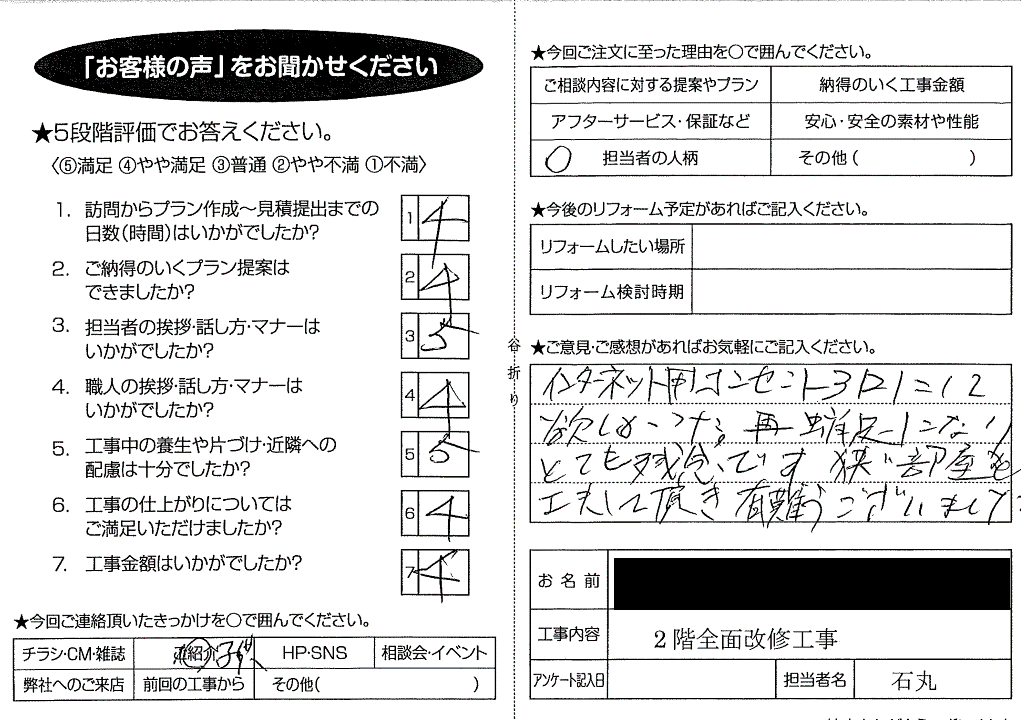 「お客様の声」をお聞かせください
★5段階評価でお答えください。
〈⑤満足 ④やや満足 ③普通 ②やや不満 ①不満〉
1. 訪問からプラン作成～見積提出までの
日数(時間)はいかがでしたか?
1 4
2. ご納得のいくプラン提案は
できましたか?
2 4
3. 担当者の挨拶・話し方・マナーは
いかがでしたか?
3 5
4. 職人の挨拶・話し方・マナーは
いかがでしたか?
4 4
5. 工事中の養生や片づけ・近隣への
配慮は十分でしたか?
5 5
6. 工事の仕上がりについては
ご満足いただけましたか?
6 4
7. 工事金額はいかがでしたか?
7 4
★今回ご連絡頂いたきっかけを○で囲んでください。
チラシ・CM・雑誌 ご紹介 HP・SNS 相談会・イベント
弊社へのご来店 前回の工事から その他( )
谷折り
★今回ご注文に至った理由を○で囲んでください。
ご相談内容に対する提案やプラン 納得のいく工事金額
アフターサービス・保証など 安心・安全の素材や性能
○ 担当者の人柄 その他( )
★今後のリフォーム予定があればご記入ください。
リフォームしたい場所
リフォーム検討時期
★ご意見・ご感想があればお気軽にご記入ください。
インターネット用コンセント3口
欲しかった。再 になり
とても残念です 狭い部屋を
工夫して頂き有難うございました
お名前
工事内容 2階全面改修工事
アンケート記入日 担当者名 石丸